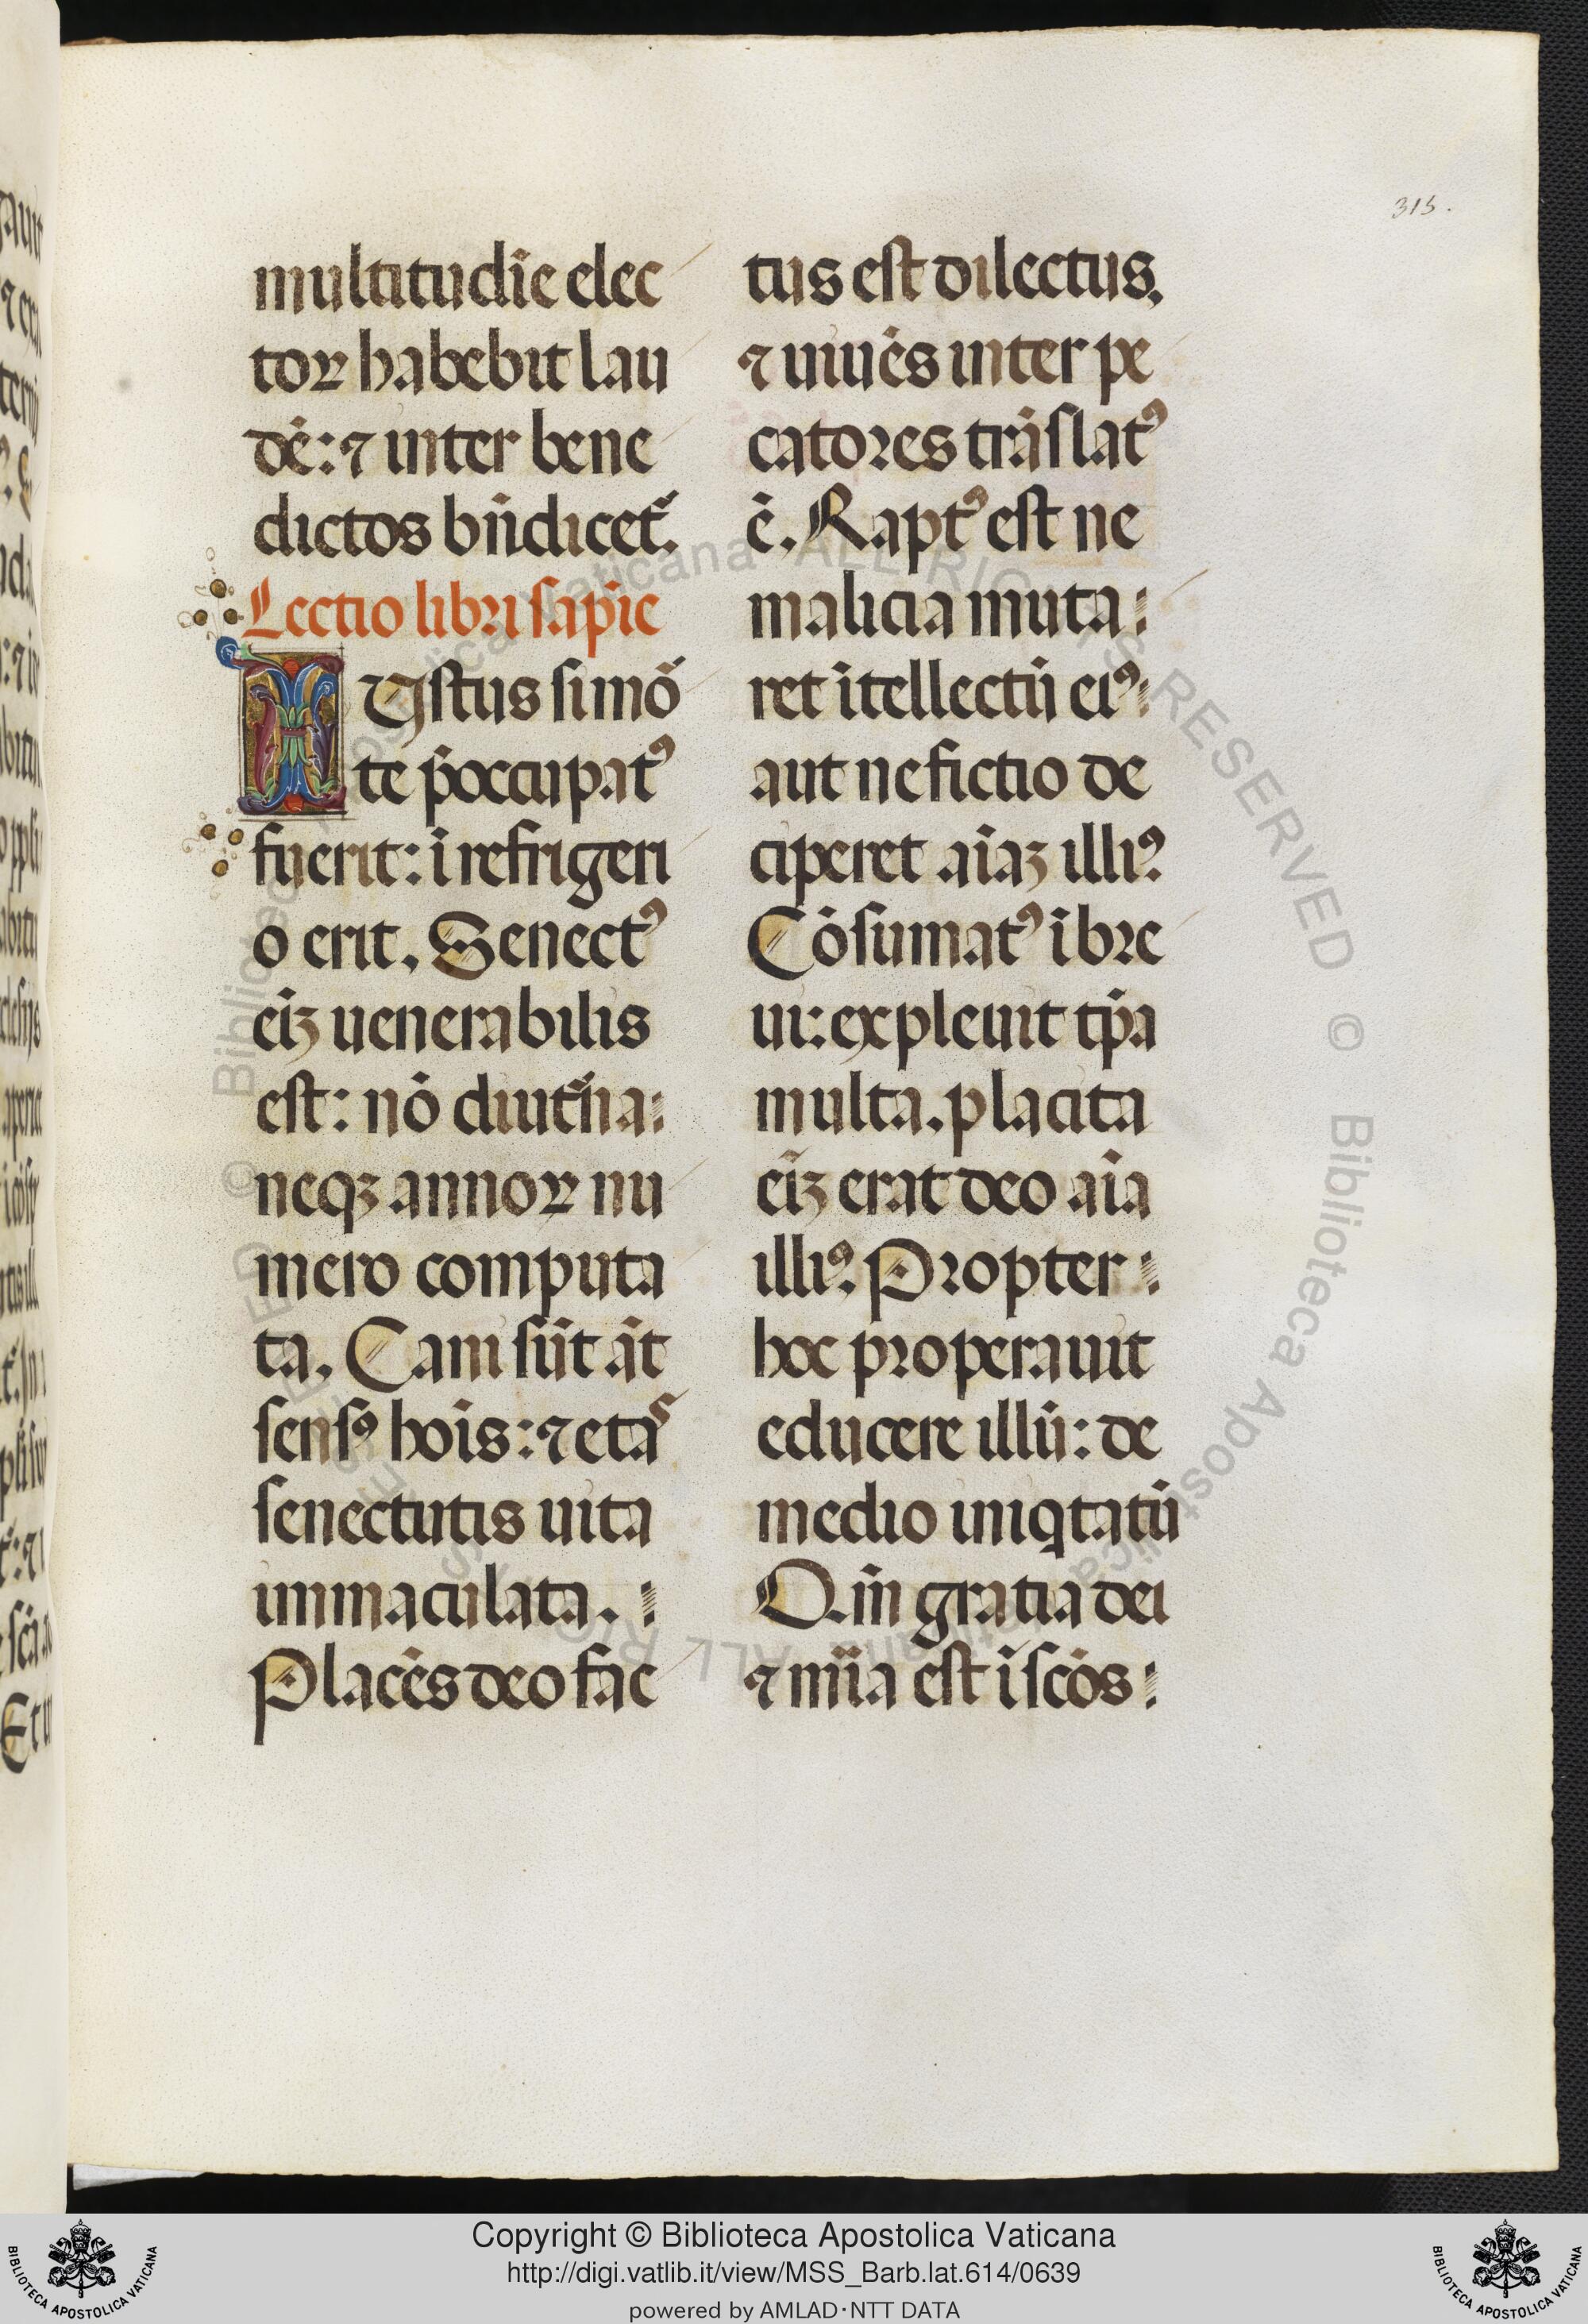 315.
multitudīe elec
toꝝ habebit lau
dē: ⁊ inter bene
dictos bn̄dicet᷑.
Lectio libri sapie
IUstus si mō
te p̄occupatꝰ
fuerit: ī refrigeri
o erit. Senectꝰ
eīꝫ uenerabilis
est: nō diut᷑na:
neqꝫ annoꝝ nu
mero computa
ta. Cani sūt āt
sensꝰ hoīs: ⁊ etas
senectutis uita
immaculata.
Placēs deo fac
tus est dilectus.
⁊ uiuēs inter pe
catores trāslatꝰ
ē. Raptꝰ est ne
malicia muta:
ret ītellectū eiꝰ:
aut ne fictio de
ciperet aīaꝫ illiꝰ.
Cōsumatꝰ ī bre
ui: expleuit tp̄a
multa. placita
eīꝫ erat deo aīa
illiꝰ. Propter:
hoc properauit
educere illū: de
medio iniqtatū
Q. m̄ gratia dei
⁊ mīa est ī scōs:
Copyright © Biblioteca Apostolica Vaticana
http://digi.vatlib.it/view/MSS_Barb.lat.614/0639
powered by AMLAD·NTT DATA
BIBLIOTECA APOSTOLICA VATICANA
BIBLIOTECA APOSTOLICA VATICANA